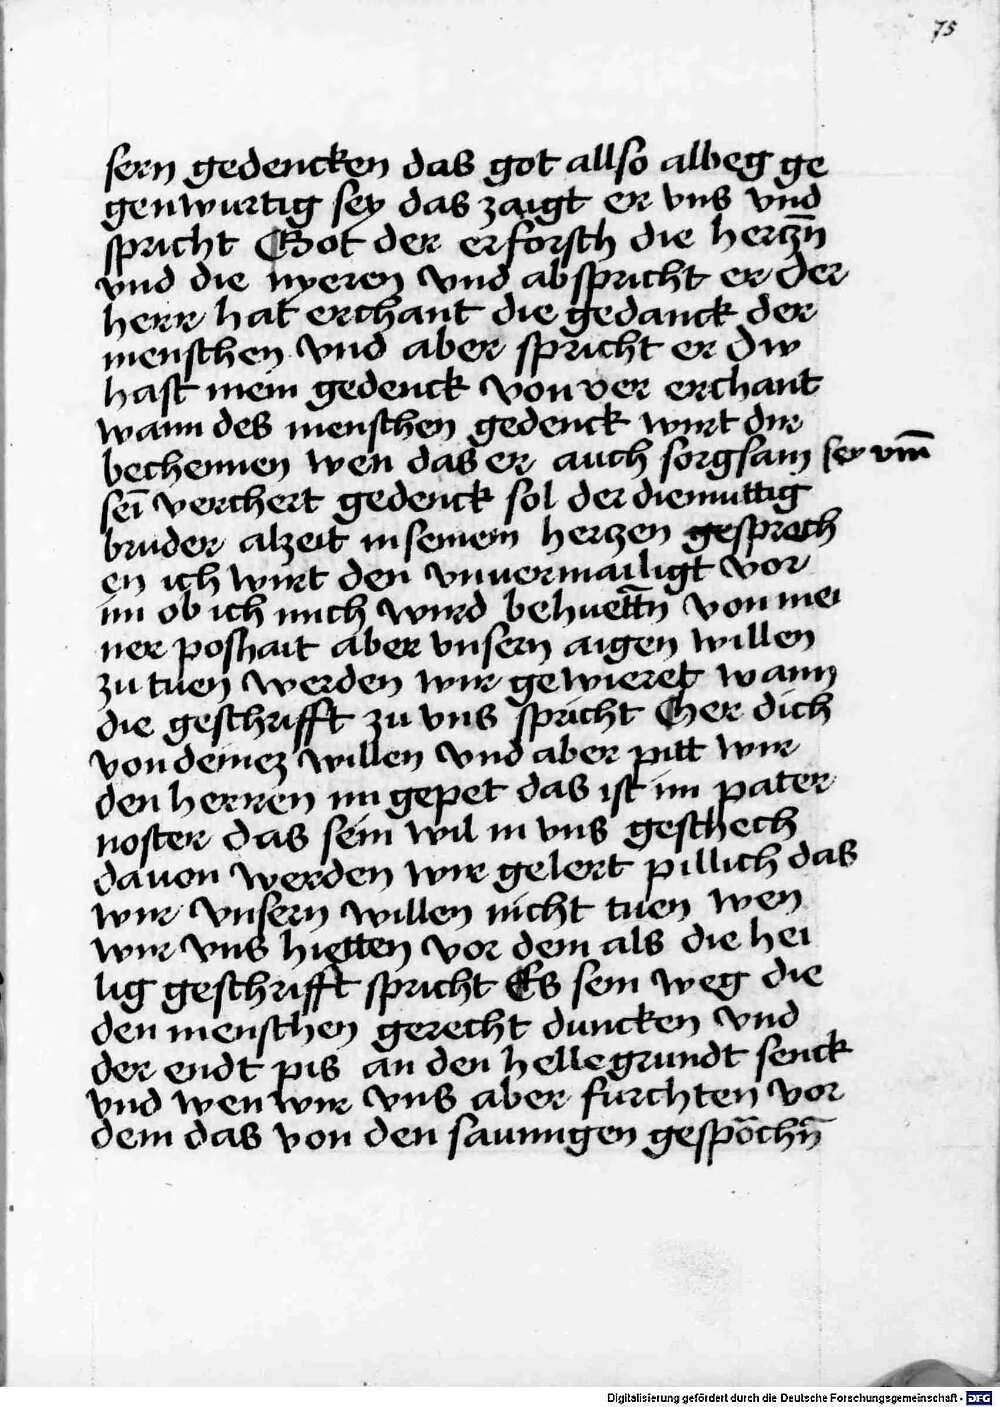 75
sern gedencken das got allso albeg ge
genwurtig sey das zaigt er vns vnd
spricht Got der erforsch die herczn̄
vnd die nyeren vnd ab spricht er der
herr hat erchant die gedanck der
menschen vnd aber spricht er dw
hast mein gedenck von ver erchant
wann des menschen gedenck wirt dir
bechennen wen das er auch sorgsam sey vm̄
sei̅ verchert gedenck sol der diemuttig
bruder alzeit in seinem herczen gesproch
en ich wirt den vnvermailigt vor
im ob ich mich wird behuettn̄ von mei
ner poshait aber vnsern aigen willen
zu tuen werden wir gewieret wann
die geschrifft zu vns spricht Cher dich
von deinez willen vnd aber pitt wir
den herren im gepet das ist im pater
noster das sein wil in vns geschech
davon werden wir gelert pillich das
wir vnsern willen nicht tuen wen
wir vns hietten vor dem als die hei
lig geschrifft spricht Es sein weg die
den menschen gerecht duncken vnd
der endt pis an den helle grundt senck
vnd wen wir vns aber furchten vor
dem das von den saumigen gespöchn̄
Digitalisierung gefördert durch die Deutsche Forschungsgemeinschaft - DFG